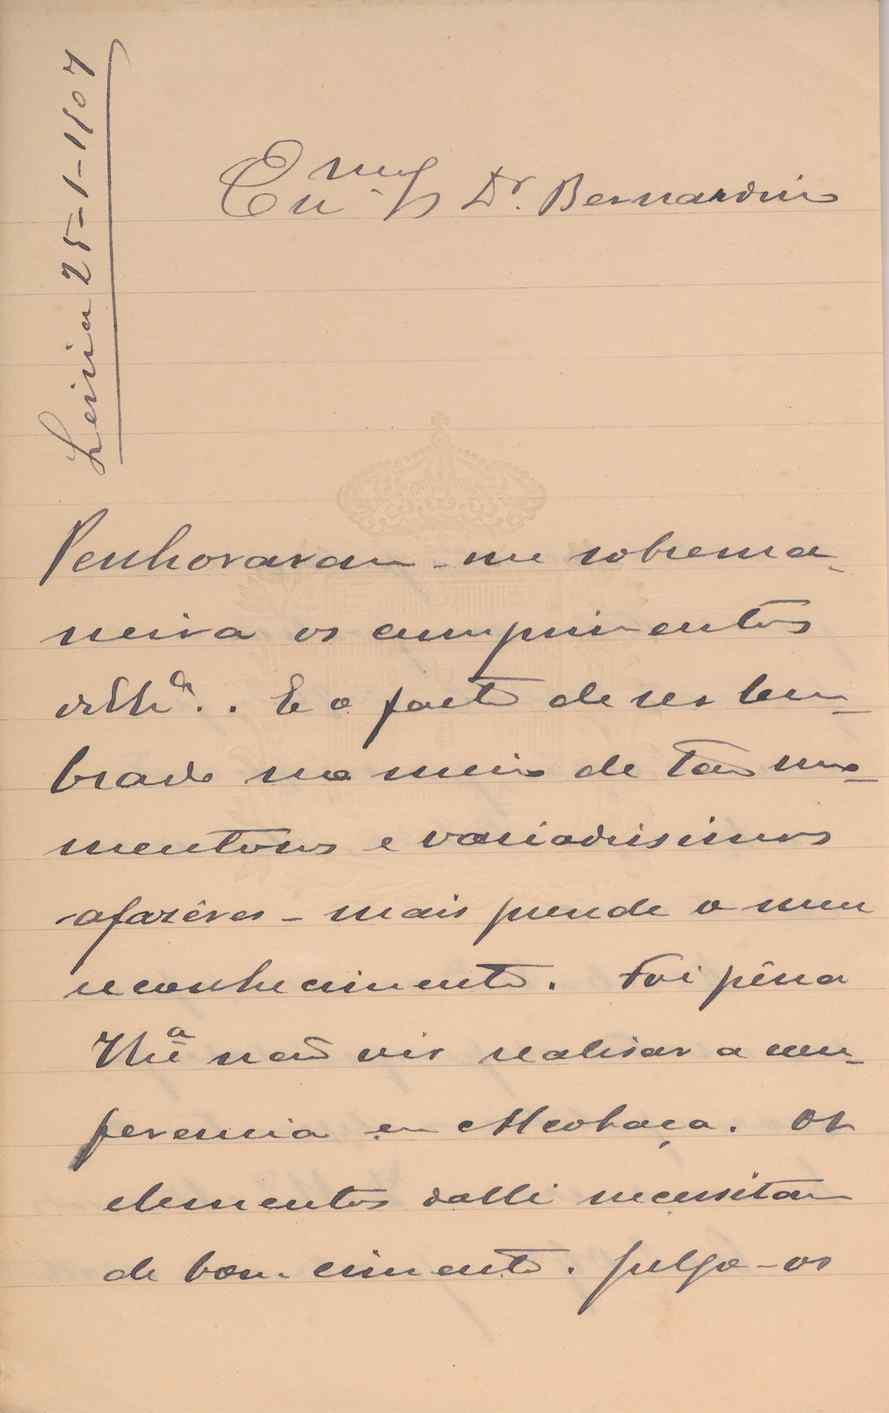 Leiria 25-1-1907
Exmo Sr Dr. Bernardino
Penhoraram-me sobrema-
neira os cumprimentos
de V. Exa.. E o facto de ser lem-
brado no meio de tão mo-
mentosos e variadissimos
afazêres - mais prende o meu
reconhecimento. Foi pêna
V. Exa não vir realisar a con-
ferencia em Alcobaça. Os
elementos dalli necessitam
de bom cimento. Julgo-os